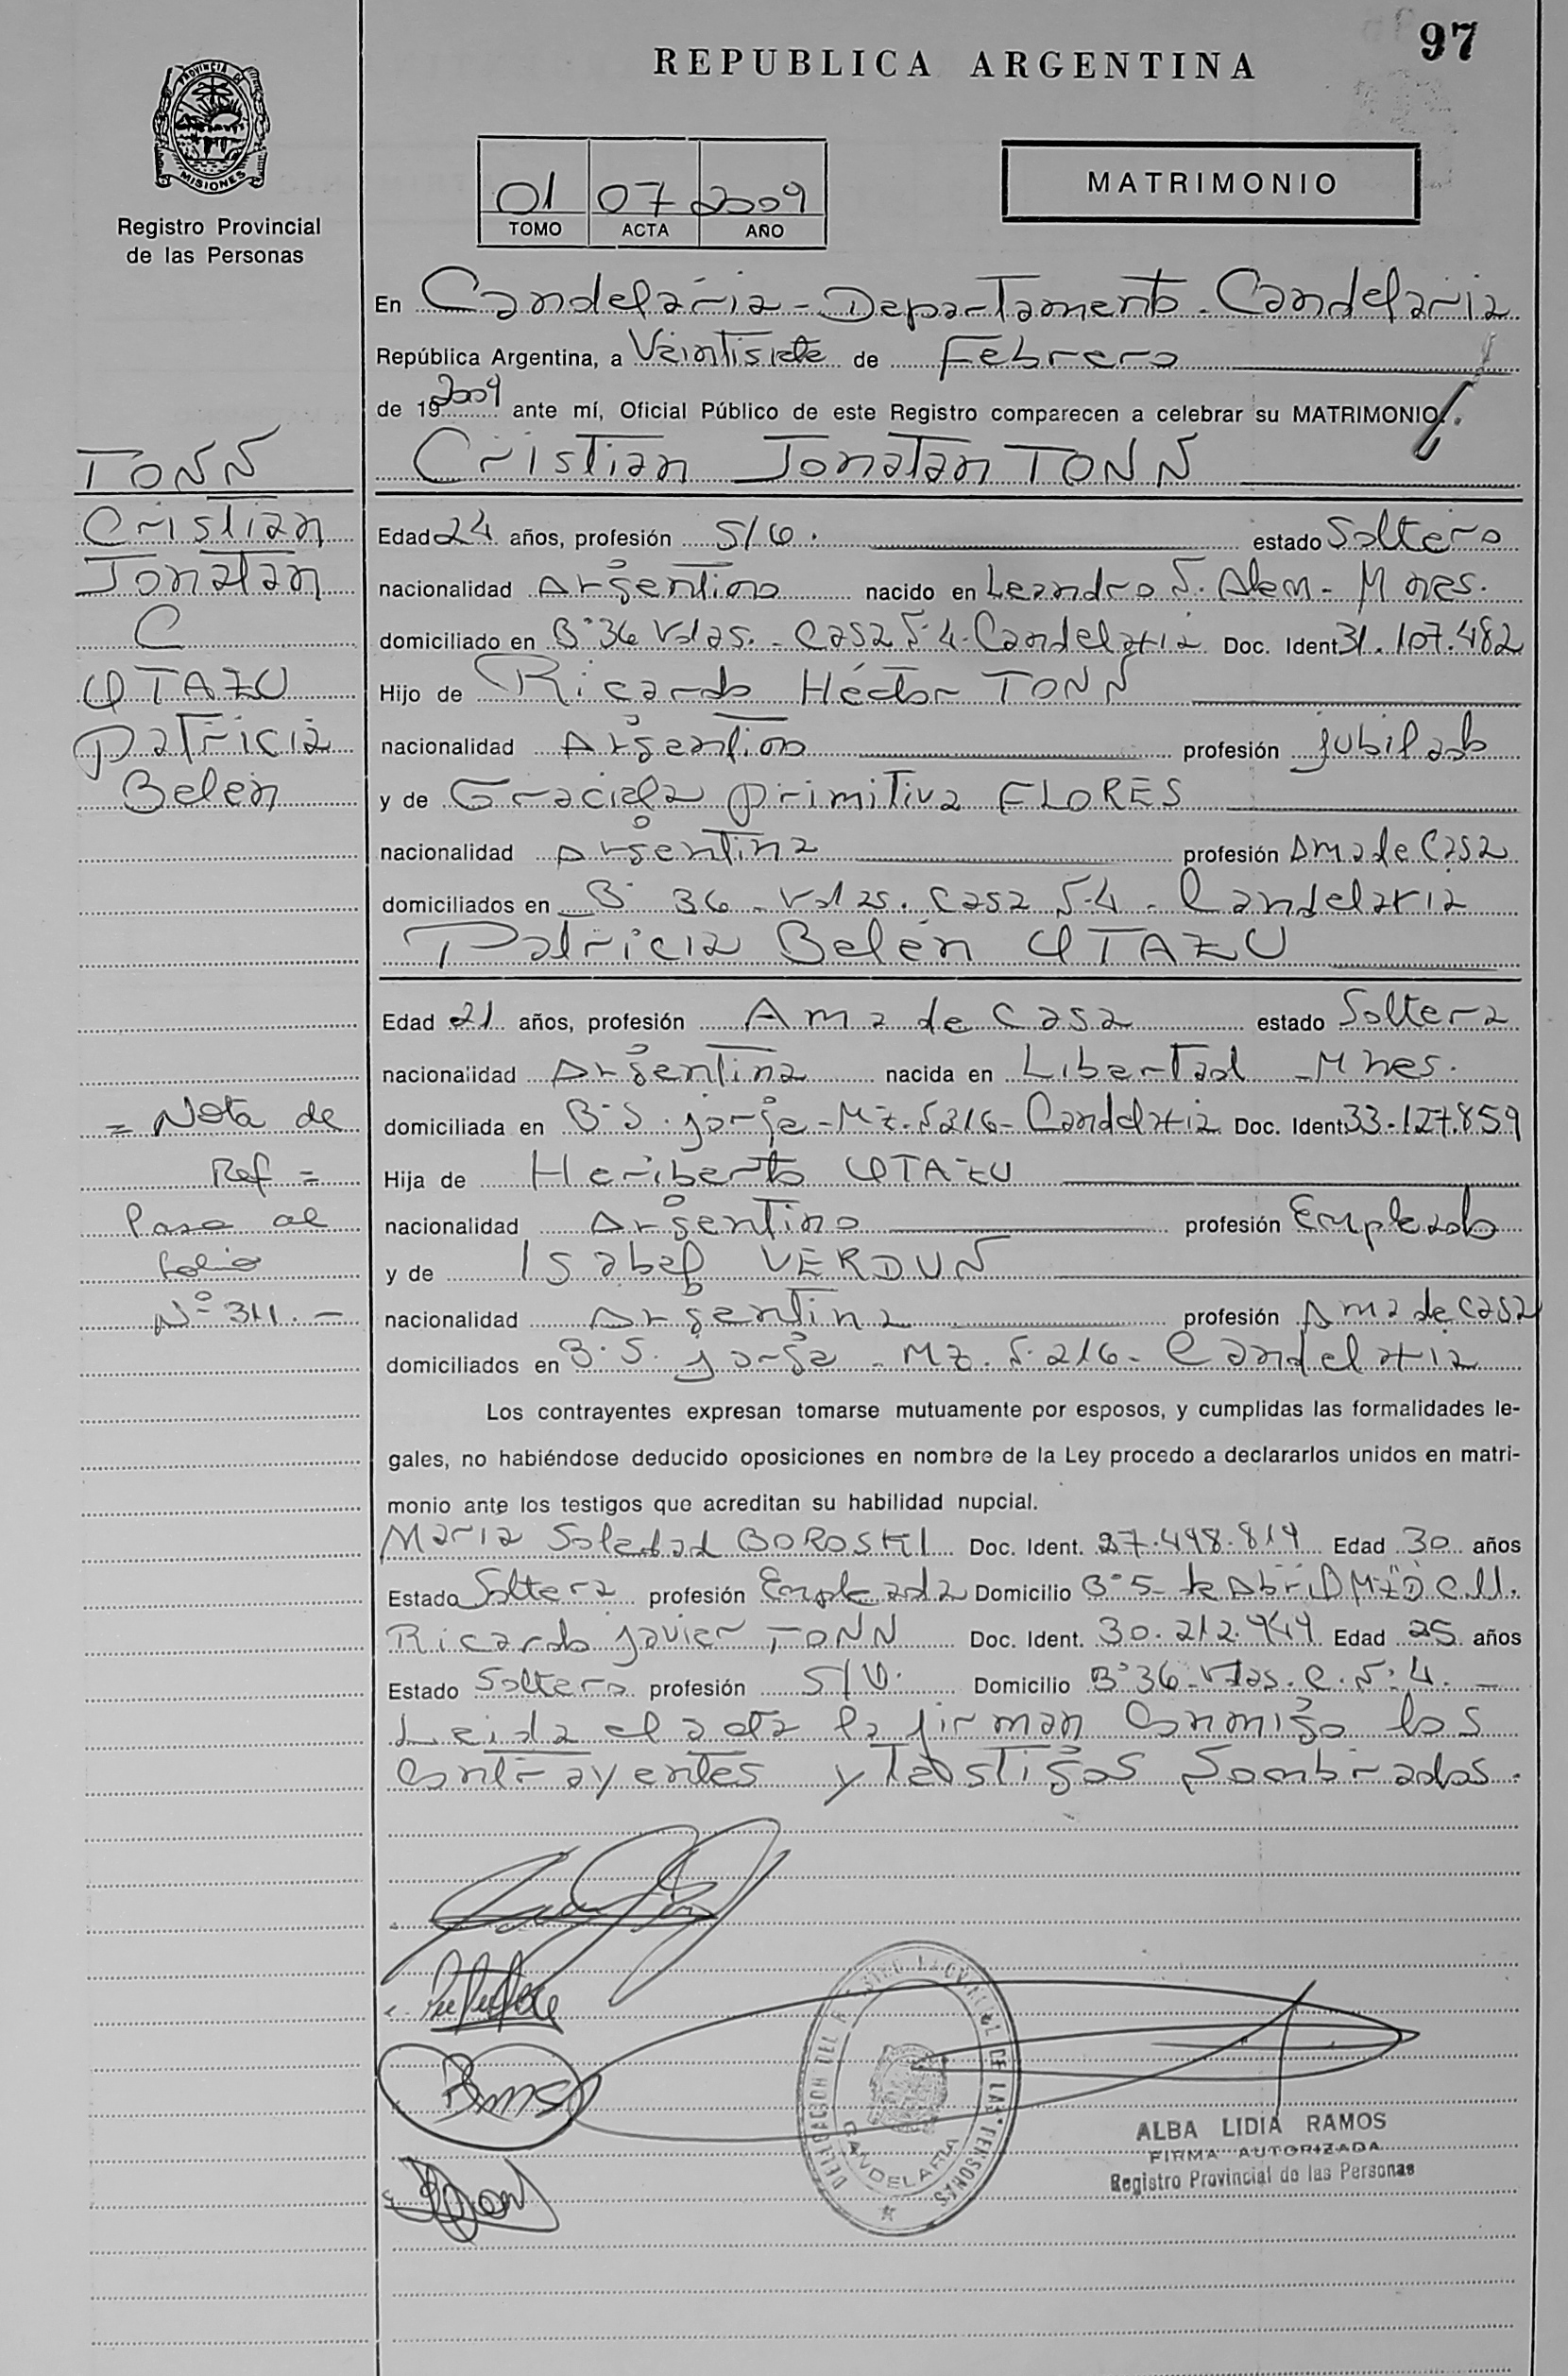 97
REPUBLICA ARGENTINA
PROVINCIA DE
MISIONES
Registro Provincial
de las Personas
01 07 2009
TOMO ACTA AÑO
MATRIMONIO
En Candelaria - Departamento - Candelaria
República Argentina, a Veintisiete de Febrero
de 19 2009 ante mí, Oficial Público de este Registro comparecen a celebrar su MATRIMONIO.
Cristian Jonatan TONN
Edad 24 años, profesión estado Soltero
nacionalidad Argentino nacido en Leandro N. Alem - Mnes.
domiciliado en B° 36 Vdas. - Casa N° 4 - Candelaria Doc. Ident 31.107.482
Hijo de Ricardo Héctor TONN
nacionalidad Argentino profesión jubilado
y de Graciela primitiva FLORES
nacionalidad Argentina profesión Ama de Casa
domiciliados en B° 36 - Vdas. Casa N° 4 - Candelaria
Patricia Belén OTAZU
Edad 21 años, profesión Ama de Casa estado Soltera
nacionalidad Argentina nacida en Libertad - Mnes.
domiciliada en B° S. jorge - Mz. N° 216 - Candelaria Doc. Ident 33.127.859
Hija de Heriberto OTAZU
nacionalidad Argentino profesión Empleado
y de Isabel VERDUN
nacionalidad Argentina profesión Ama de Casa
domiciliados en B° S. jorge - Mz. N° 216 - Candelaria
Los contrayentes expresan tomarse mutuamente por esposos, y cumplidas las formalidades le-
gales, no habiéndose deducido oposiciones en nombre de la Ley procedo a declararlos unidos en matri-
monio ante los testigos que acreditan su habilidad nupcial.
Maria Soledad BOROSKI Doc. Ident. 27.498.819 Edad 30 años
Estado Soltera profesión Empleada Domicilio B° 5 de Abril
Ricardo javier TONN Doc. Ident. 30.212.949 Edad 25 años
Estado Soltero profesión Domicilio B° 36 Vdas. C. N° 4. -
Leida el acta la firman Conmigo los
Contrayentes y Testigos Nombrados.
TONN
Cristian
Jonatan
C
OTAZU
Patricia
Belén
= Nota de
Ref =
Pasa al
folio
N° 311. -
DELEGACION DEL REGISTRO PROVINCIAL DE LAS PERSONAS
CANDELARIA
ALBA LIDIA RAMOS
FIRMA AUTORIZADA
Registro Provincial de las Personas